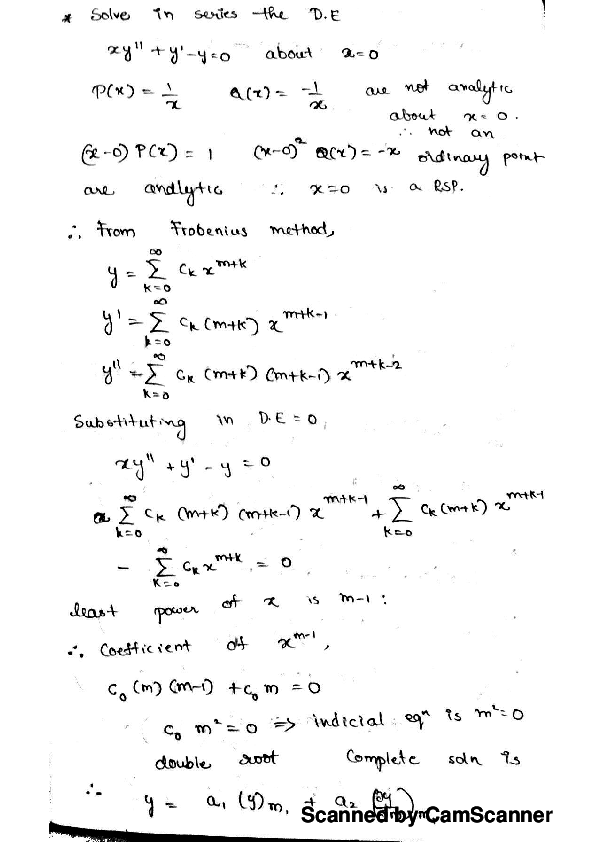 * Solve in series the D.E
xy'' + y' - y = 0 about x = 0
P(x) = 1/x Q(x) = -1/x are not analytic
about x = 0.
∴ not an
(x-0) P(x) = 1 (x-0)² Q(x) = -x ordinary point
are analytic ∴ x=0 is a RSP.
∴ From Frobenius method,
y = ∞ Σ k=0 c_k x^{m+k}
y' = ∞ Σ k=0 c_k (m+k) x^{m+k-1}
y'' = ∞ Σ k=0 c_k (m+k) (m+k-1) x^{m+k-2}
Substituting in D.E = 0,
xy'' + y' - y = 0
∞ Σ k=0 c_k (m+k) (m+k-1) x^{m+k-1} + ∞ Σ k=0 c_k (m+k) x^{m+k-1}
- ∞ Σ k=0 c_k x^{m+k} = 0
least power of x is m-1 :
∴ Coefficient of x^{m-1},
c_0 (m) (m-1) + c_0 m = 0
c_0 m² = 0 => indicial eqⁿ is m² = 0
double root Complete soln is
∴ y = a_1 (y)_{m_1} + a_2
Scanned by CamScanner